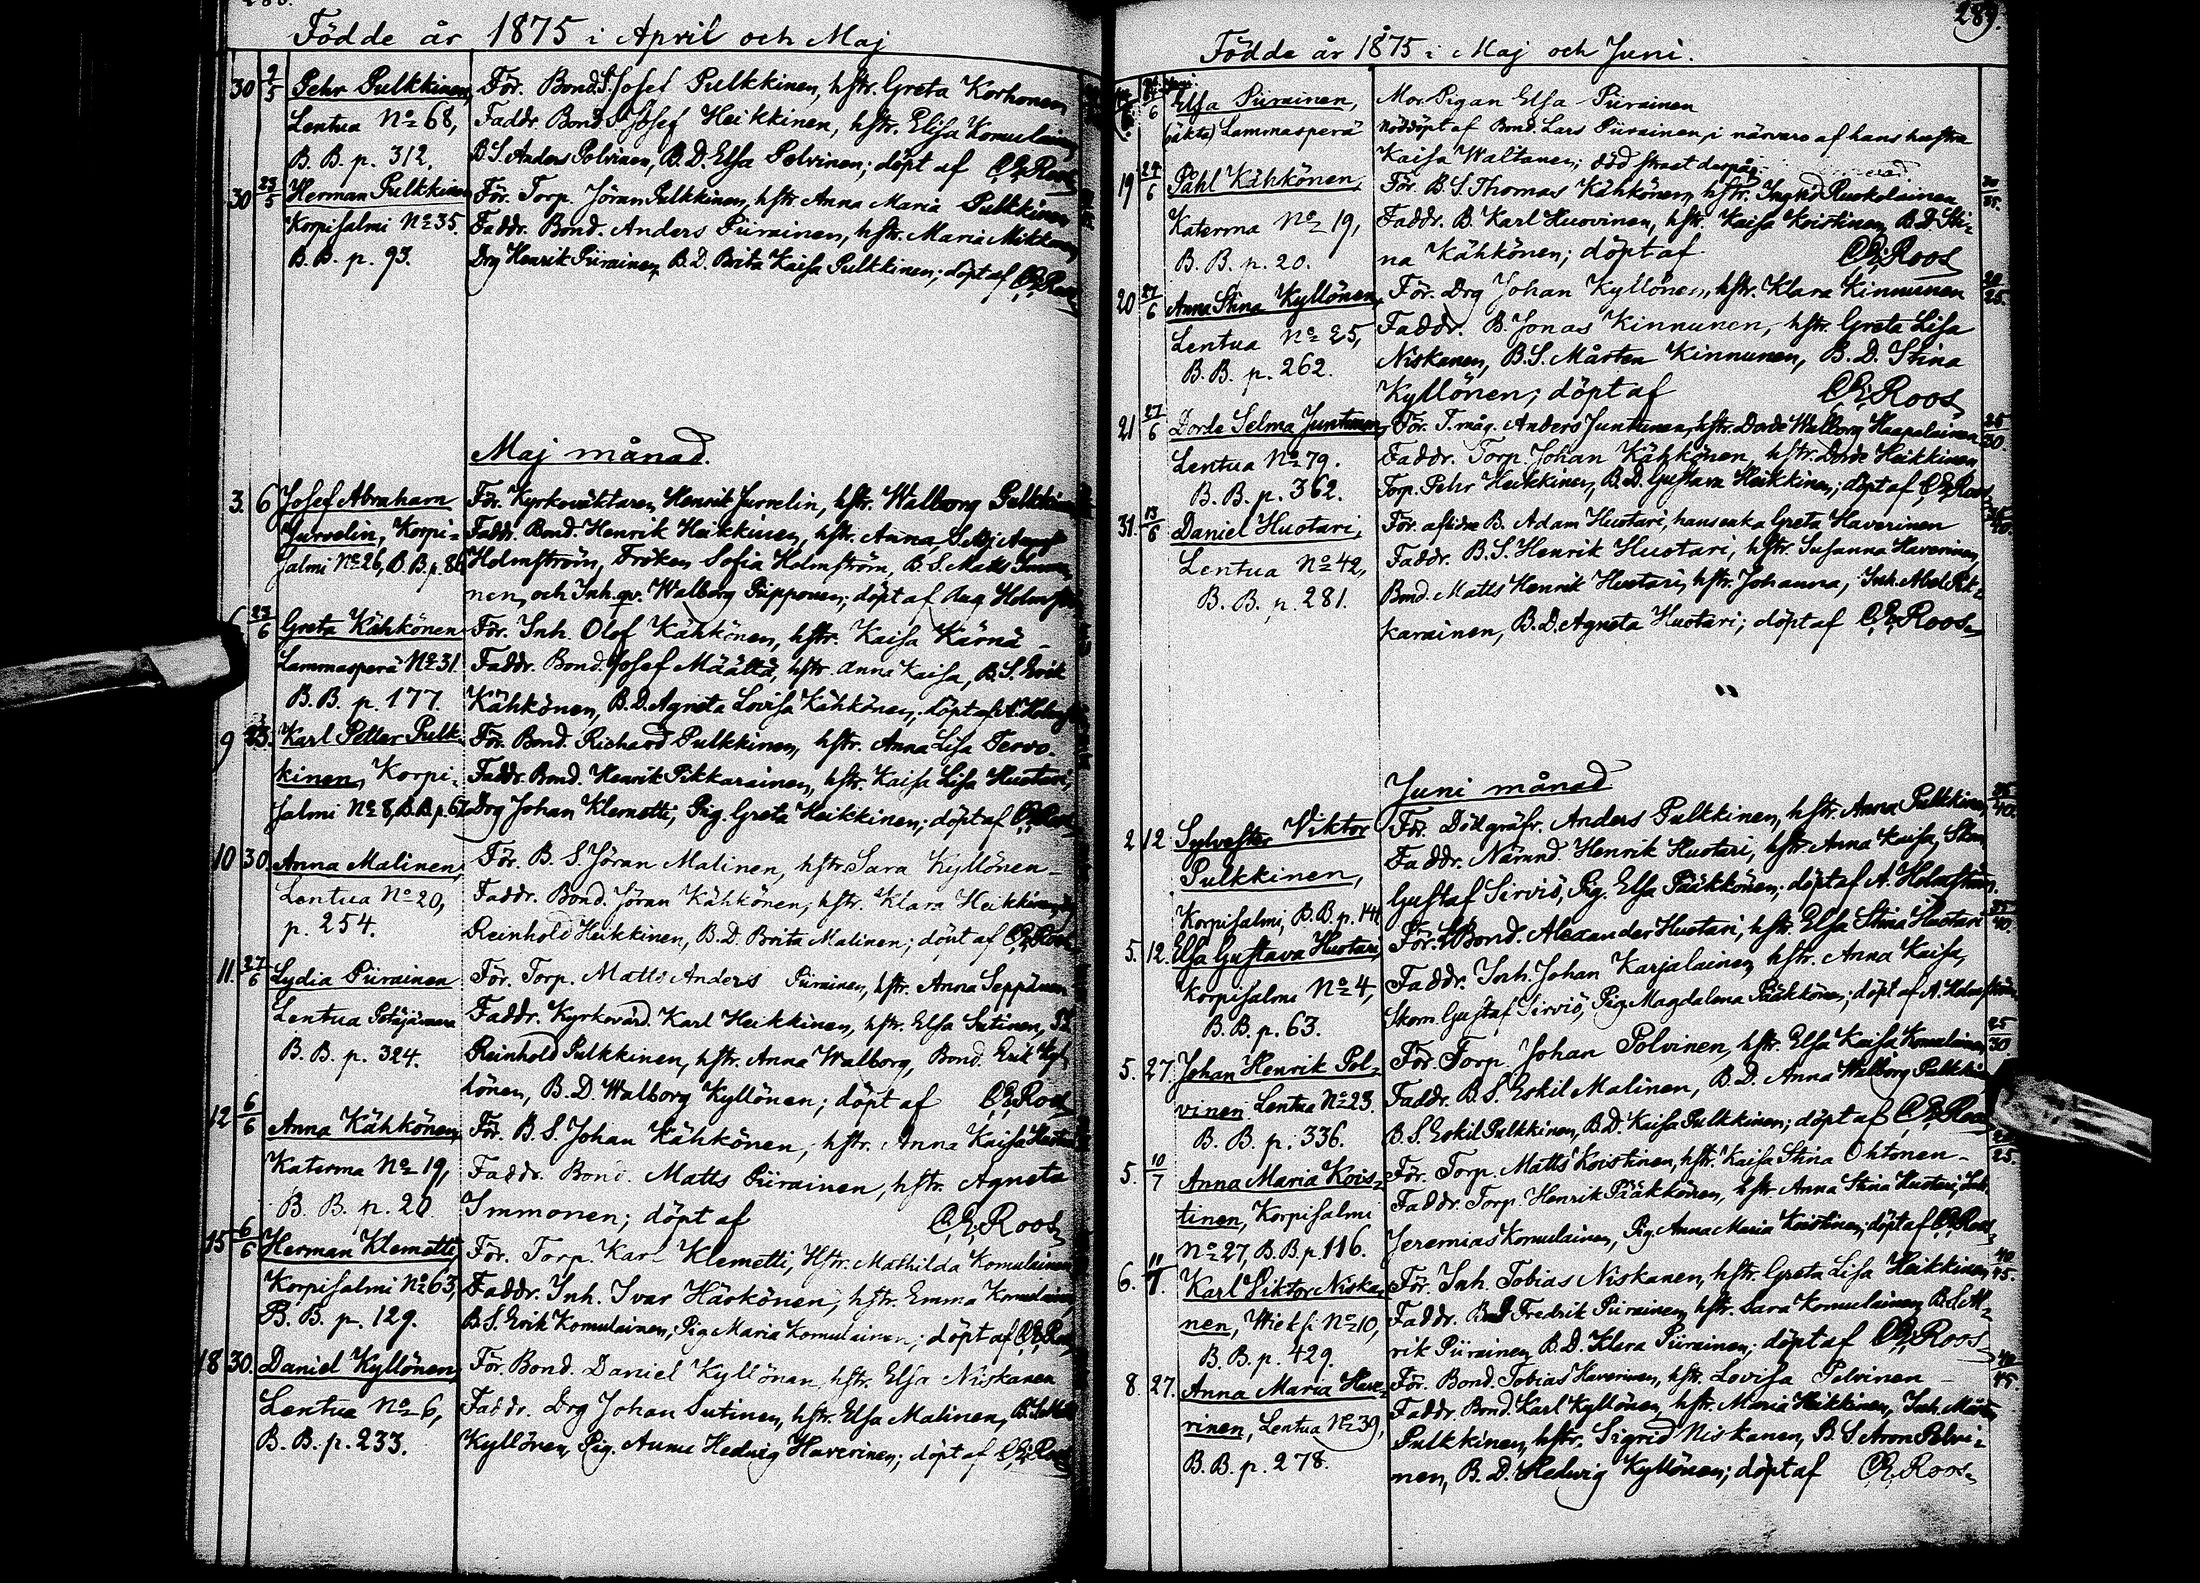 Födde år 1875 i April och Maj
30 9/5 Pehr Pulkkinen, För. Bond.S. Josef Pulkkinen, hstr. Greta Korhonen
Lentua No 68, Faddr. Bond.S. Josef Heikkinen, hstr. Elisa Komulainen
B. B. p. 312. B.S. Anders Polvinen, B.D. Elsa Polvinen; döpt af C.E. Roos
30 23/5 Herman Pulkkinen För. Torp. Jöran Pulkkinen, hstr. Anna Maria Pulkkinen
Korpisalmi No 35. Faddr. Bond. Anders Piirainen, hstr. Maria Mikkonen
B. B. p. 93. Drg Henrik Piirainen, B.D. Brita Kaisa Pulkkinen; döpt af C.E. Roos
Maj månad.
3. 6 Josef Abraham För. Kyrkoväktaren Henrik Jurvelin, hstr. Walborg Pulkkinen
Jurvelin, Korpi- Faddr. Bond. Henrik Heikkinen, hstr. Anna,
salmi No 26, B.B. p. 86 Holmström, Fröken Sofia Holmström, B.S. Matts
nen, och Inh. qv. Walborg Piipponen; döpt af Aug Holmström
6 23/6 Greta Kähkönen För. Inh. Olof Kähkönen, hstr. Kaisa Kärnä -
Lammasperä No 31. Faddr. Bond. Josef Määttä, hstr. Anna Kaisa, B.S. Erik
B. B. p. 177. Kähkönen, B.D. Agneta Lovisa Kähkönen; döpt af A. Holmström
9 23. Karl Petter Pulk- För. Bond. Richard Pulkkinen, hstr. Anna Lisa Tervo.
kinen, Korpi- Faddr. Bond. Henrik Pikkarainen, hstr. Kaisa Lisa Huotari,
salmi No 8, B.B. p. 67. Drg Johan Klemetti, Pig. Greta Heikkinen; döpt af C.E. Roos
10 30. Anna Malinen, För. B. S. Jöran Malinen, hstr. Sara Kyllönen -
Lentua No 20, Faddr. Bond. Jöran Kähkönen, hstr. Klara Heikkinen,
p. 254. Reinhold Heikkinen, B.D. Brita Malinen; döpt af C.E. Roos
11. 27/6 Lydia Piirainen För. Torp. Matts Anders Piirainen, hstr. Anna Seppänen
Lentua Petäjävaara Faddr. Kyrkovärd. Karl Heikkinen, hstr. Elsa Sutinen,
B. B. p. 324. Reinhold Pulkkinen, hstr. Anna Walborg, Bond. Erik Kyl-
lönen, B. D. Walborg Kyllönen; döpt af C.E. Roos
12 6/6 Anna Kähkönen, För. B. S. Johan Kähkönen, hstr. Anna Kaisa Huotari
Katerma No 19, Faddr. Bond. Matts Piirainen, hstr. Agneta
B. B. p. 20 Immonen; döpt af C.E. Roos
15 6/6 Herman Klemetti, För. Torp. Karl Klemetti, Hstr. Mathilda Komulainen
Korpisalmi No 63, Faddr. Inh. Ivar Härkönen, hstr. Emma Komulainen,
B. B. p. 129. B.S. Erik Komulainen, Pig Maria Komulainen; döpt af C.E. Roos
18 30. Daniel Kyllönen, För. Bond. Daniel Kyllönen hstr. Elsa Niskanen
Lentua No 6, Faddr. Drg Johan Sutinen, hstr. Elsa Malinen, B.S.
B. B. p. 233. Kyllönen, Pig. Hedvig Haverinen; döpt af C.E. Roos
289.
Födda år 1875 i Maj och Juni.
Elsa Piirainen, Mor. Pigan Elsa Piirainen
(oäkta) Lammasperä Nöddöpt af Bond. Lars Piirainen, i närvaro af hans hustru
Kaisa Waltanen; död straxt derpå.
19 24/6 Påhl Kähkönen, För. B. S. Thomas Kähkönen, hstr. Ingrid Ruokolainen
Katerma No 19, Faddr. B. Karl Huovinen, hstr. Kaisa Koistinen, B.D. Sti-
B. B. p. 20. na Kähkönen; döpt af C.E. Roos
20 27/6 Anna Stina Kyllönen, För. Drg Johan Kyllönen, hstr. Klara Kinnunen
Lentua No 25, Faddr. B. Jonas Kinnunen, hstr. Greta Lisa
B. B. p. 262. Niskanen, B.S. Mårten Kinnunen, B. D. Stina
Kyllönen; döpt af C.E. Roos
21 27/6 Dorde Selma Juntunen, För. T.måg. Anders Juntunen, hstr. Dorde Walborg Haapalainen
Lentua No 79. Faddr. Torp. Johan Kähkönen, hstr. Dorde Heikkinen,
B. B. p. 362. Torp. Pehr Heikkinen, B.D. Gustava Heikkinen; döpt af C.E. Roos
31. 13/6 Daniel Huotari, För. aflidne B. Adam Huotari, hans enka Greta Haverinen
Lentua No 42, Faddr. B. S. Henrik Huotari, hstr. Susanna Haverinen,
B. B. p. 281. Bond. Matts Henrik Huotari, hstr. Johanna, Inh. Abel Pik-
karainen, B.D. Agneta Huotari; döpt af C.E. Roos
Juni månad
2 12. Sylvester Viktor För. Dödgräfv. Anders Pulkkinen, hstr. Anna Pulkkinen,
Pulkkinen, Faddr. Nämnd. Henrik Huotari, hstr. Anna Kaisa, Skom.
Korpisalmi, B.B. p. 141 Gustaf Sirviö, Pig. Elsa Pääkkönen; döpt af A. Holmström.
5. 12. Elsa Gustava Huotari, För. Bond. Alexander Huotari, hstr. Elsa Stina Huotari
Korpisalmi No 4, Faddr. Inh. Johan Karjalainen, hstr. Anna Kaisa,
B. B. p. 63. Skom. Gustaf Sirviö, Pig. Magdalena Pääkkönen; döpt af A. Holmström.
5. 27. Johan Henrik Pol- För. Torp. Johan Polvinen, hstr. Elsa Kaisa Komulainen
vinen Lentua No 23. Faddr. B. S. Eskil Malinen, B.D. Anna Walborg Pulkkinen
B. B. p. 336. B.S. Eskil Pulkkinen, B.D. Kaisa Pulkkinen; döpt af C.E. Roos
5. 10/7 Anna Maria Kois- För. Torp. Matts Koistinen, hstr. Kaisa Stina Ohtonen -
tinen, Korpisalmi Faddr. Torp. Henrik Pääkkönen, hstr. Anna Stina Huotari, Inh.
No 27, B.B. p. 116. Jeremias Komulainen, Pig. Anna Maria Koistinen; döpt af C.E. Roos
6. 11/7. Karl Viktor Niska- För. Inh. Tobias Niskanen, hstr. Greta Lisa Heikkinen
nen, Wieksi No 10, Faddr. Bond. Fredrik Piirainen, hstr. Sara Komulainen
B. B. p. 429. rik Piirainen, B.D. Klara Piirainen; döpt af C.E. Roos
8. 27. Anna Maria Have- För. Bond. Tobias Haverinen, hstr. Lovisa Polvinen -
rinen, Lentua No 39, Faddr. Bond. Karl Kyllönen, hstr. Maria Heikkinen, Inh. Mårten
B. B. p. 278. Pulkkinen, hstr. Sigrid Niskanen, B. S. Aron Polvi-
nen, B. D. Hedvig Kyllönen; döpt af C.E. Roos